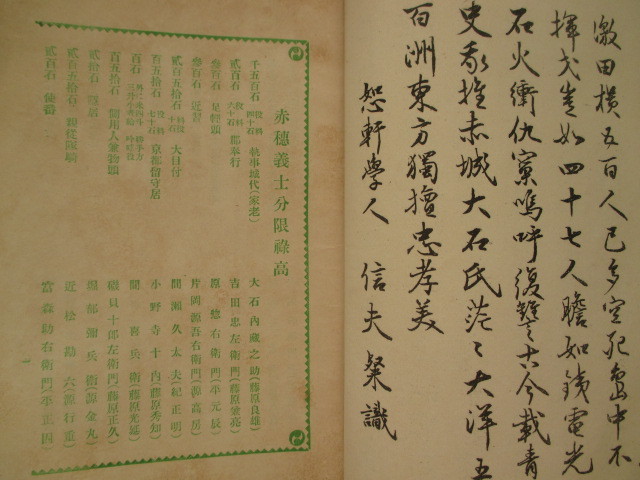 激田横五百人已多空死島中不
揮戈豈如四十七人膽如鉄電光
石火衝仇寨嗚呼復讐之古今載青
史我推赤城大石氏茫々大洋五
百洲東方獨擅忠孝美
恕軒學人 信夫粲識
赤穂義士分限祿高
千五百石 役料四十石 執事城代(家老) 大石內藏之助(藤原良雄)
貳百石 役料六十石 郡奉行 吉田忠左衛門(藤原兼亮)
參百石 足輕頭 原惣右衛門(平元辰)
參百石 近習 片岡源吾右衛門(源高房)
貳百五拾石 役料十石 大目付 間瀬久太夫(紀正明)
百五拾石 役料七十石 京都留守居 小野寺十內(藤原秀知)
百石 勝手方吟味役 間喜兵衛(藤原光延)
百五拾石 側用人兼物頭 磯貝十郎左衛門(藤原正久)
貳拾石 隱居 堀部彌兵衛(源金丸)
貳百五拾石 親從隊 近松勘六(源行重)
貳百石 使番 富森助右衛門(平正因)
一